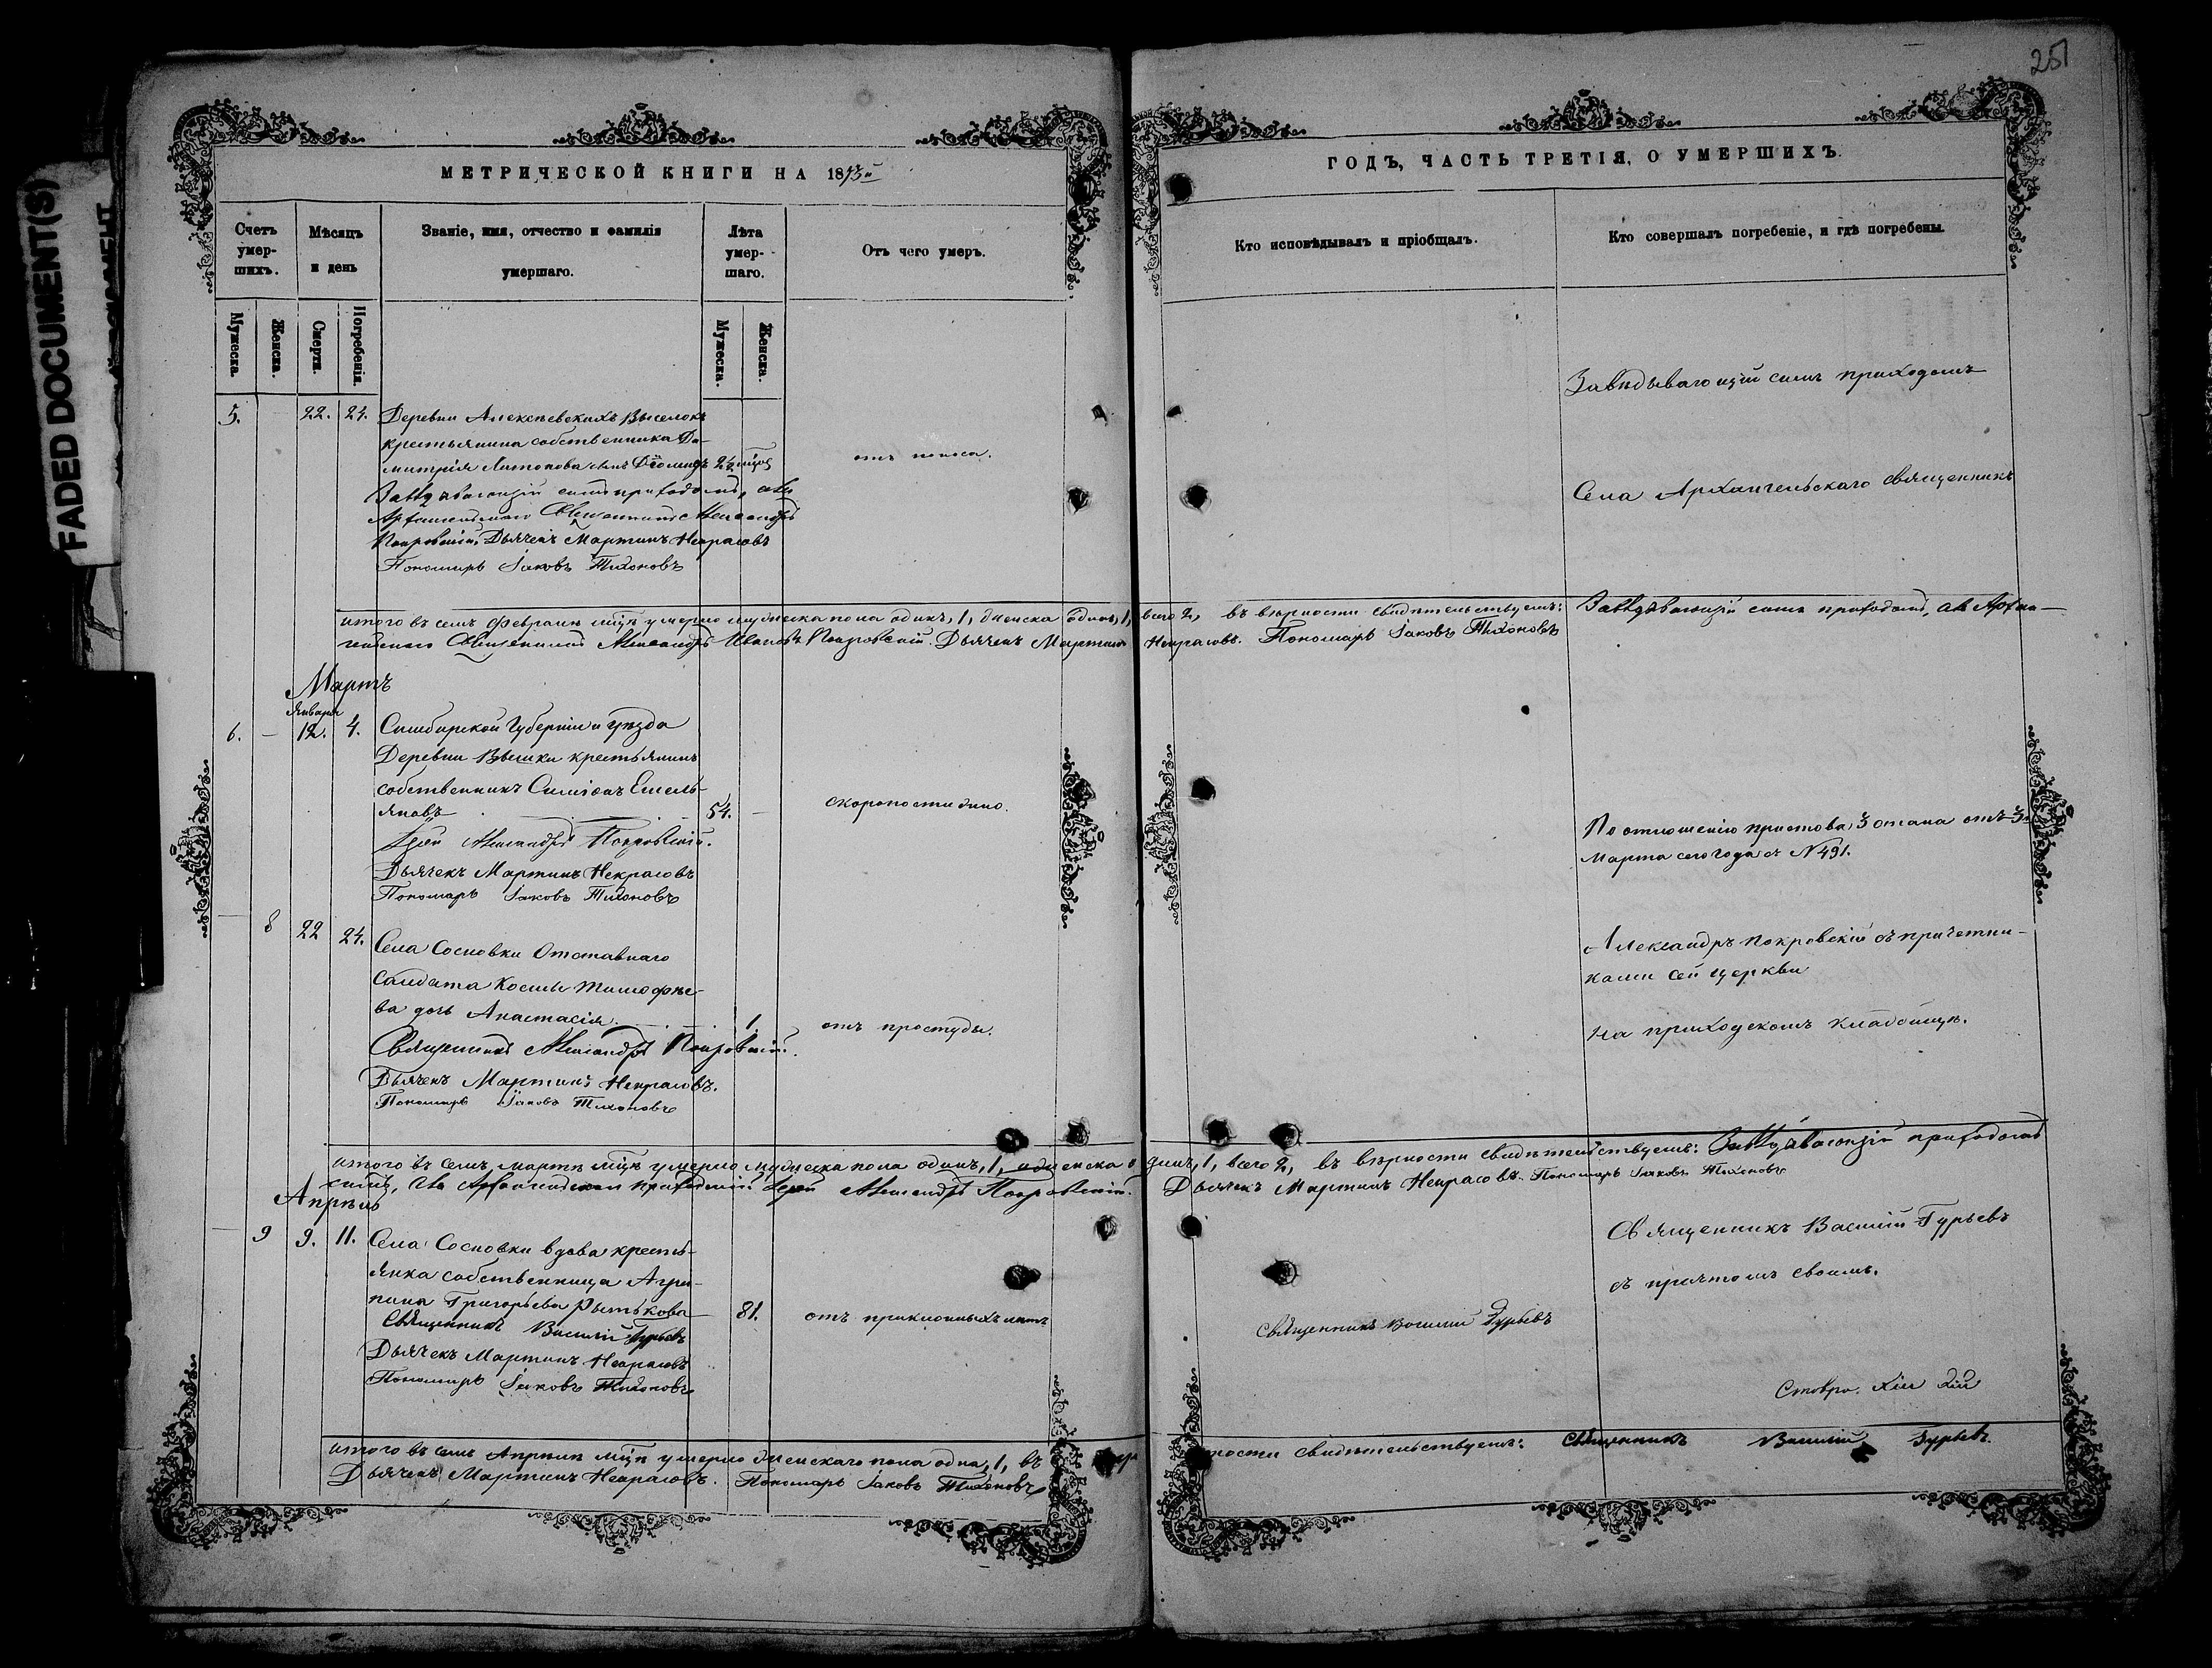 FADED DOCUMENT(S)
251
МЕТРИЧЕСКОЙ КНИГИ НА 1873й
Счетъ умер-шихъ.
Мѣсяцъ и день
Званіе, имя, отчество и фамилія умершаго.
Лѣта умер-шаго.
Отъ чего умеръ.
Мужеска.
Женска.
Смерти.
Погребенія.
Мужеска.
Женска.
5. 22. 24. Деревни Алексѣевскихъ Выселокъ
крестьянина собственника Ди-
митрія Антонова сынъ
отъ поноса.
Завѣдывающій симъ приходомъ, села
Архангельскаго Священникъ Александръ
Покровскій. Дьячекъ Мартинъ Некрасовъ
Пономарь Іаковъ Тихоновъ
итого въ семъ Февралѣ мцѣ умерло мужеска пола одинъ, 1, женска одна, 1,
Священникъ Александръ Покровскій. Дьячекъ Мартинъ
Мартъ
Января
6. – 12. 4. Симбирской Губерніи и уѣзда
Деревни Вышки крестьянинъ
собственникъ Симеонъ Емель-
яновъ 54. – скоропостижно.
Іерей Александръ Покровскій.
Дьячекъ Мартинъ Некрасовъ
Пономарь Іаковъ Тихоновъ
– 8 22 24. Села Сосновки Отставнаго
Салдата Косьмы Тимофѣе-
ва дочь Анастасія. 1. отъ простуды.
Священникъ Александръ Покровскій.
Дьячекъ Мартинъ Некрасовъ.
Пономарь Іаковъ Тихоновъ
итого въ семъ мартѣ мцѣ умерло мужеска пола одинъ, 1, женска о
симъ, Іерей Александръ Покровскій.
Апрѣль
– 9 9. 11. Села Сосновки вдова кресть-
янка собственница Агри-
пина Григорьева Рытькова 81. отъ преклонныхъ лѣтъ
Священникъ Василій Гурьевъ
Дьячекъ Мартинъ Некрасовъ
Пономарь Іаковъ Тихоновъ
итого въ семъ Апрѣлѣ мцѣ умерло женскаго пола одна, 1, въ
Дьячекъ Мартинъ Некрасовъ. Пономарь Іаковъ Тихоновъ
ГОДЪ, ЧАСТЬ ТРЕТІЯ, О УМЕРШИХЪ.
Кто исповѣдывалъ и пріобщалъ.
Кто совершалъ погребеніе, и гдѣ погребены.
Завѣдывающій симъ приходомъ
Села Архангельскаго священникъ
всего 2, въ вѣрности свидѣтельствуемъ: Завѣдывающій симъ приходомъ,
Некрасовъ. Пономарь Іаковъ Тихоновъ
По отношенію пристава 3 стана отъ 3
Марта сего года съ №491.
Александръ Покровскій съ причетни-
ками сей церкви
на приходскомъ кладбищѣ.
дна, 1, всего 2, въ вѣрности свидѣтельствуемъ: Завѣдывающій приходомъ
Дьячекъ Мартинъ Некрасовъ. Пономарь Іаковъ Тихоновъ
Священникъ Василій Гурьевъ
съ причтомъ своимъ.
Священникъ Василій Гурьевъ
ности свидѣтельствуемъ: Священникъ Василій Гурьевъ.